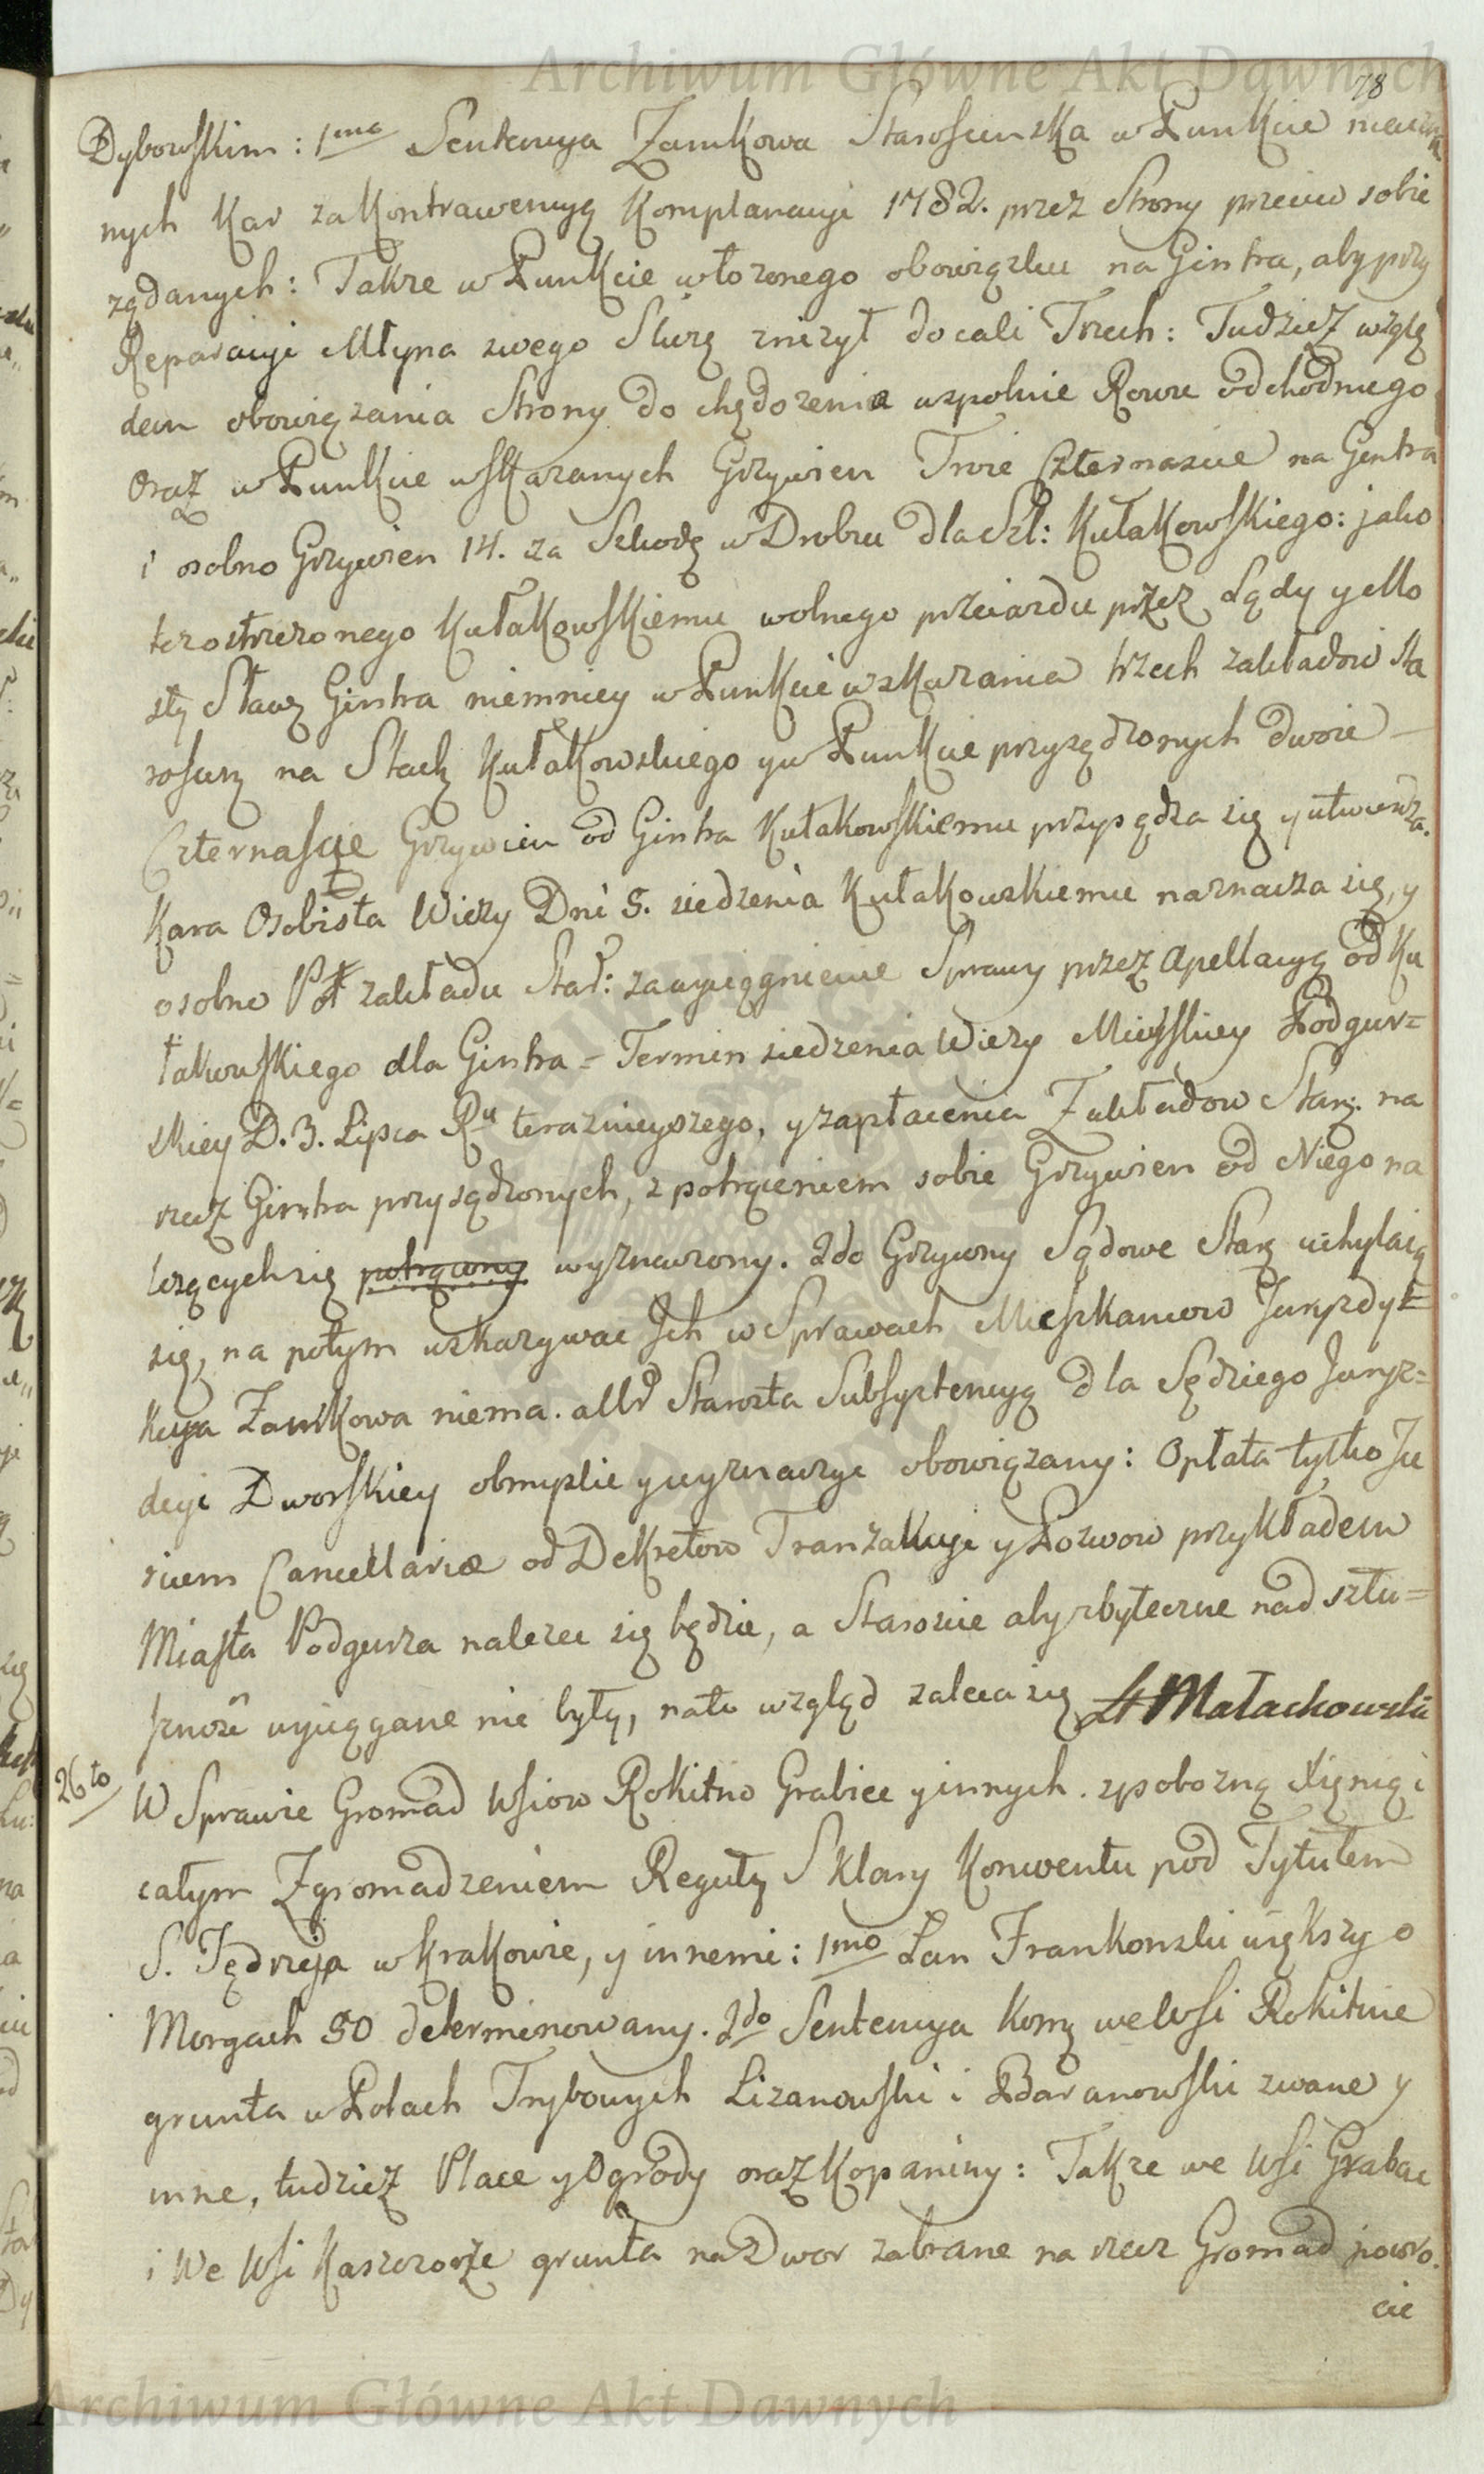 Archiwum Główne Akt Dawnych
78
Dybowskim: 1mo Sentencya Zamkowa Starościnska w Punkcie nieuzna
nych Kar za Kontrawencyą Komplanacyi 1782. przez Strony przeciw sobie
żądanych: Takze w Punkcie włozonego obowiązku na Gintra, aby przy
Reparacyi Młyna swego Sluzę znizył do cali Trzech: Tudziez wzglę
dem obowiązania Strony do chędozenia wspolnie Rowu odchodnego
oraz w Punkcie wskazanych Grzywien Troie Czternascie na Gintra
i osobno Grzywien 14. za Szkodę w Drobiu dla Szl: Kułakowskiego: jako
tez ostrzezonego Kułakowskiemu wolnego przeiazdu przez Lądy y Mo
sty Stawu Gintra niemniey w Punkcie wskazania trzech zakładow Sta
rosciń na Stach Kułakowskiego y w Punkcie przysądzonych dwoie
Czternascie Grzywien od Gintra Kułakowskiemu przysądza się y utwierdza.
Kara Osobista Wiezy Dni 5. siedzenia Kułakowskiemu naznacza się, y
osobno Poł zakładu Star: za wyciągnienie Sprawy przez Apellacyą od Ku
łakowskiego dla Gintra = Termin siedzenia Wiezy Mieyskiey Podgur=
skiey D. 3. Lipca Ru teraznieyszego, y zapłacenia Zakładow Starz. na
rzecz Gintra przysądzonych, z potrąceniem sobie Grzywien od Niego na
lezących się potrącony wyznaczony. 2do Grzywny Sądowe Starz uchylaią
się, na potym wskazywac Ich w Sprawach Mieszkancow Juryzdyk=
kcya Zamkowa niema. alld Starosta Subsystencyą dla Sędziego Juryz=
dcyi Dworskiey obmyslic y wyznaczyc obowiązany: Opłata tylko Ju
rium Cancellariæ od Dekretow Tranzakcyi y Pozwow przykładem
Miasta Podgurza nalezec się będzie, a Staroscie aby zbyteczne nad słu=
szność wyciągane nie były, na to wzgląd zaleca się St Małachowski
26to W Sprawie Gromad Wsiow Rokitno Grabiec y innych z pobozną Xięnią i
całym Zgromadzeniem Reguły S Klary Konwentu pod Tytułem
S. Jędrzeja w Krakowie, y innemi: 1mo Łan Frankonski większy o
Morgach 50 determinowany. 2do Sentencya Komz we Wsi Rokitnie
grunta w Polach Trybowych Lizanowski i Baranowski zwane y
inne, tudziez Place y Ogrody oraz Kopaniny: Takze we Wsi Grabac
i We Wsi Kaszczorze grunta na Dwor zabrane na rzecz Gromad powro.
cie
Archiwum Główne Akt Dawnych